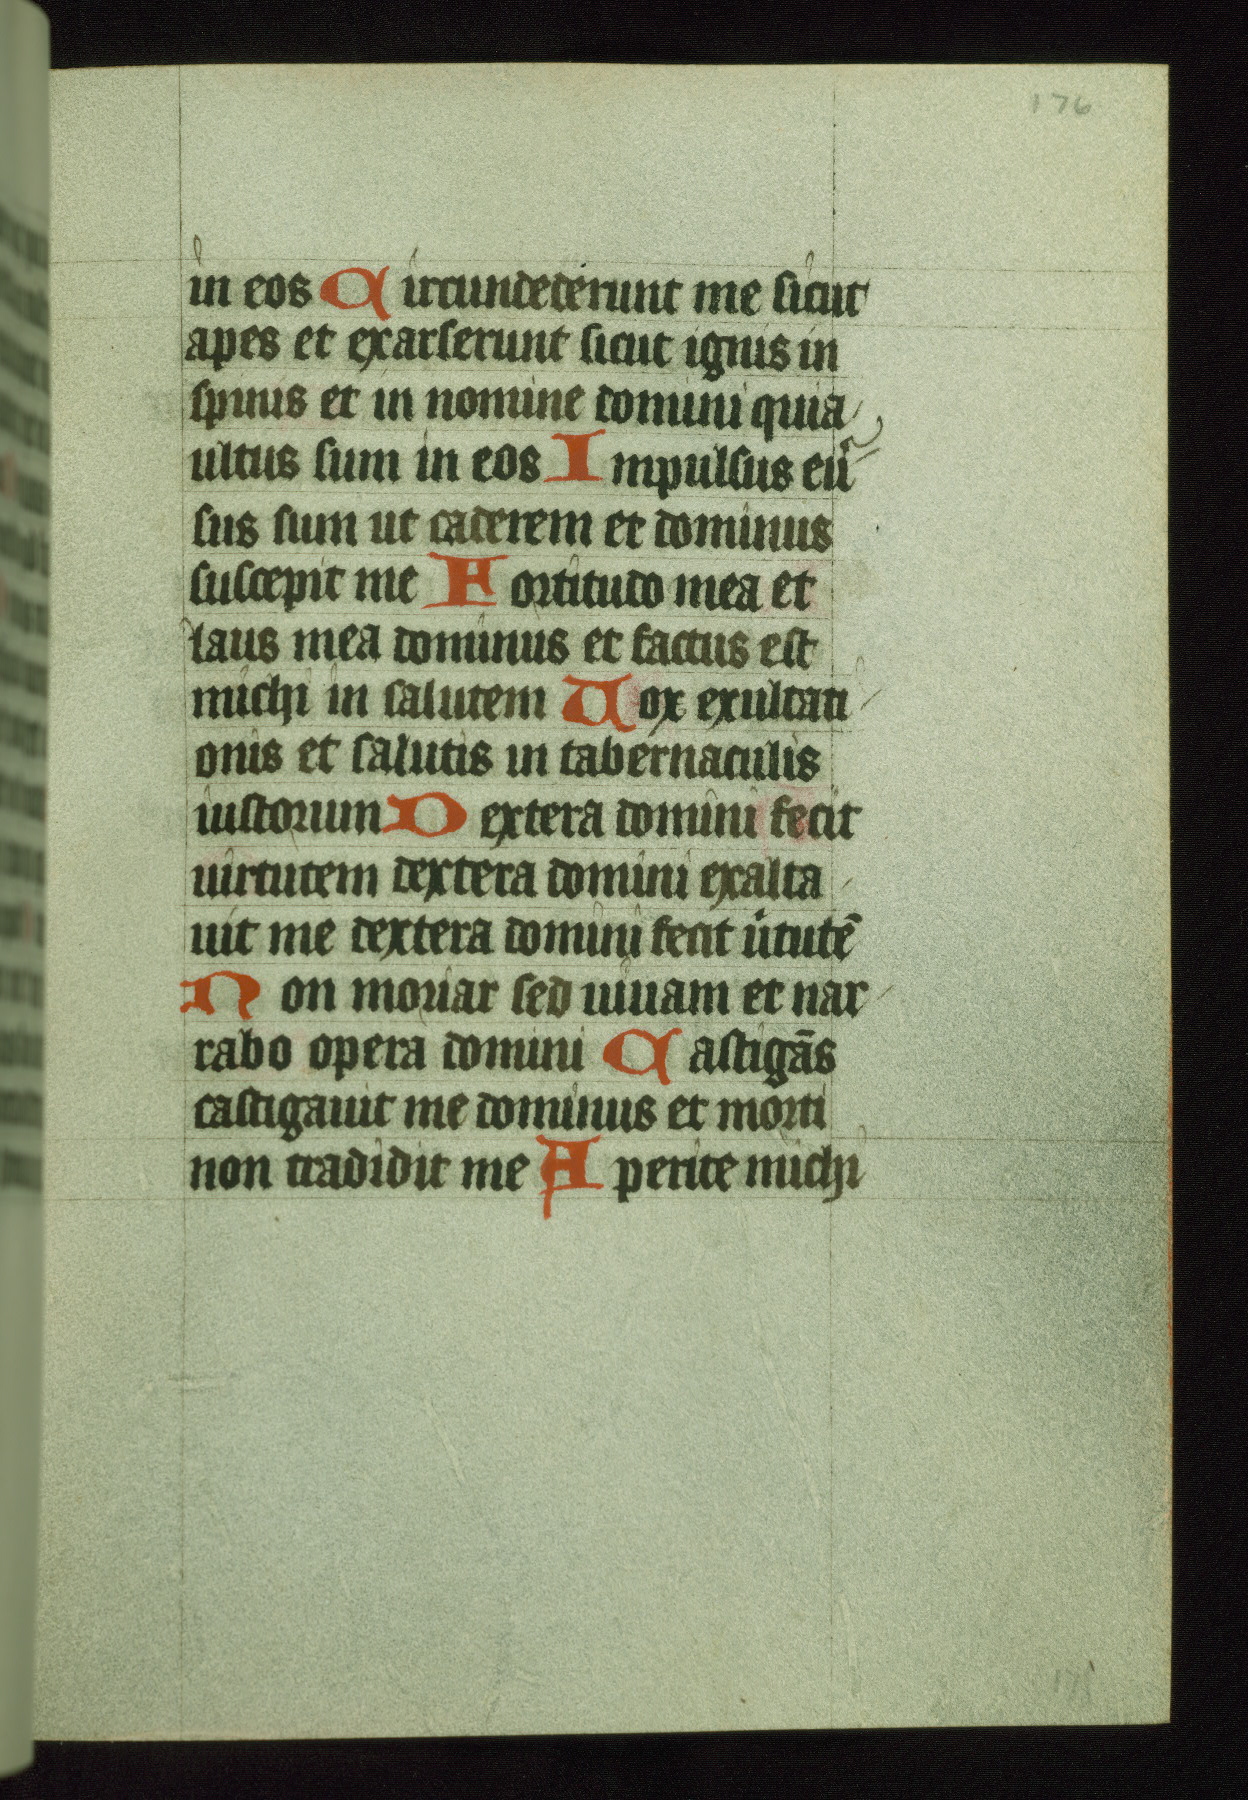 176
in eos Circundederunt me sicut
apes et exarserunt sicut ignis in
spinis et in nomine domini quia
ultus sum in eos Impulsus eū
sus sum ut caderem et dominus
suscepit me Fortitudo mea et
laus mea dominus et factus est
michi in salutem Vox exultati
onis et salutis in tabernaculis
iustorum Dextera domini fecit
uirtutem dextera domini exalta
uit me dextera domini fecit ututē
Non moriar sed uiuam et nar
rabo opera domini Castigās
castigauit me dominus et morti
non tradidit me Aperite michi